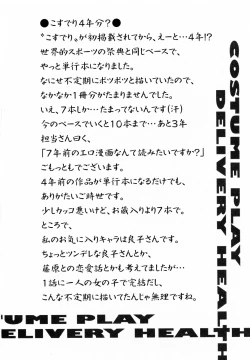 ●こすでり4年分？●
〝こすでり〟が初掲載されてから、えーと…4年!?
世界的スポーツの祭典と同じペースで、
やっと単行本になりました。
なにせ不定期にポツポツと描いていたので、
なかなか1冊分がたまりませんでした。
いえ、7本しか…たまってないんです(汗)
今のペースでいくと10本まで…あと3年
担当さん曰く、
「7年前のエロ漫画なんて読みたいですか?」
ごもっともでございます。
4年前の作品が単行本になるだけでも、
ありがたいご時世です。
少しカッコ悪いけど、お蔵入りより7本で。
ところで、
私のお気に入りキャラは良子さんです。
ちょっとツンデレな良子さんとか、
藤原との恋愛話とかも考えてましたが…
1話に一人の女の子で完結だし、
こんな不定期に描いてたんじゃ無理ですね。
COSTUME PLAY
DELIVERY HEALTH
UME PLAY
ELIVERY HEALTH